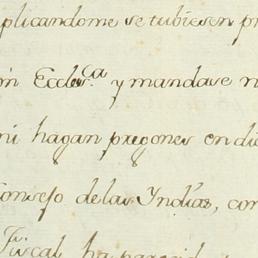 plicandome se tubiesen p
on Eccles.ca y mandase n
ni hagan pregones en di
Consejo de las Yndias, con
Fiscal ha parecid